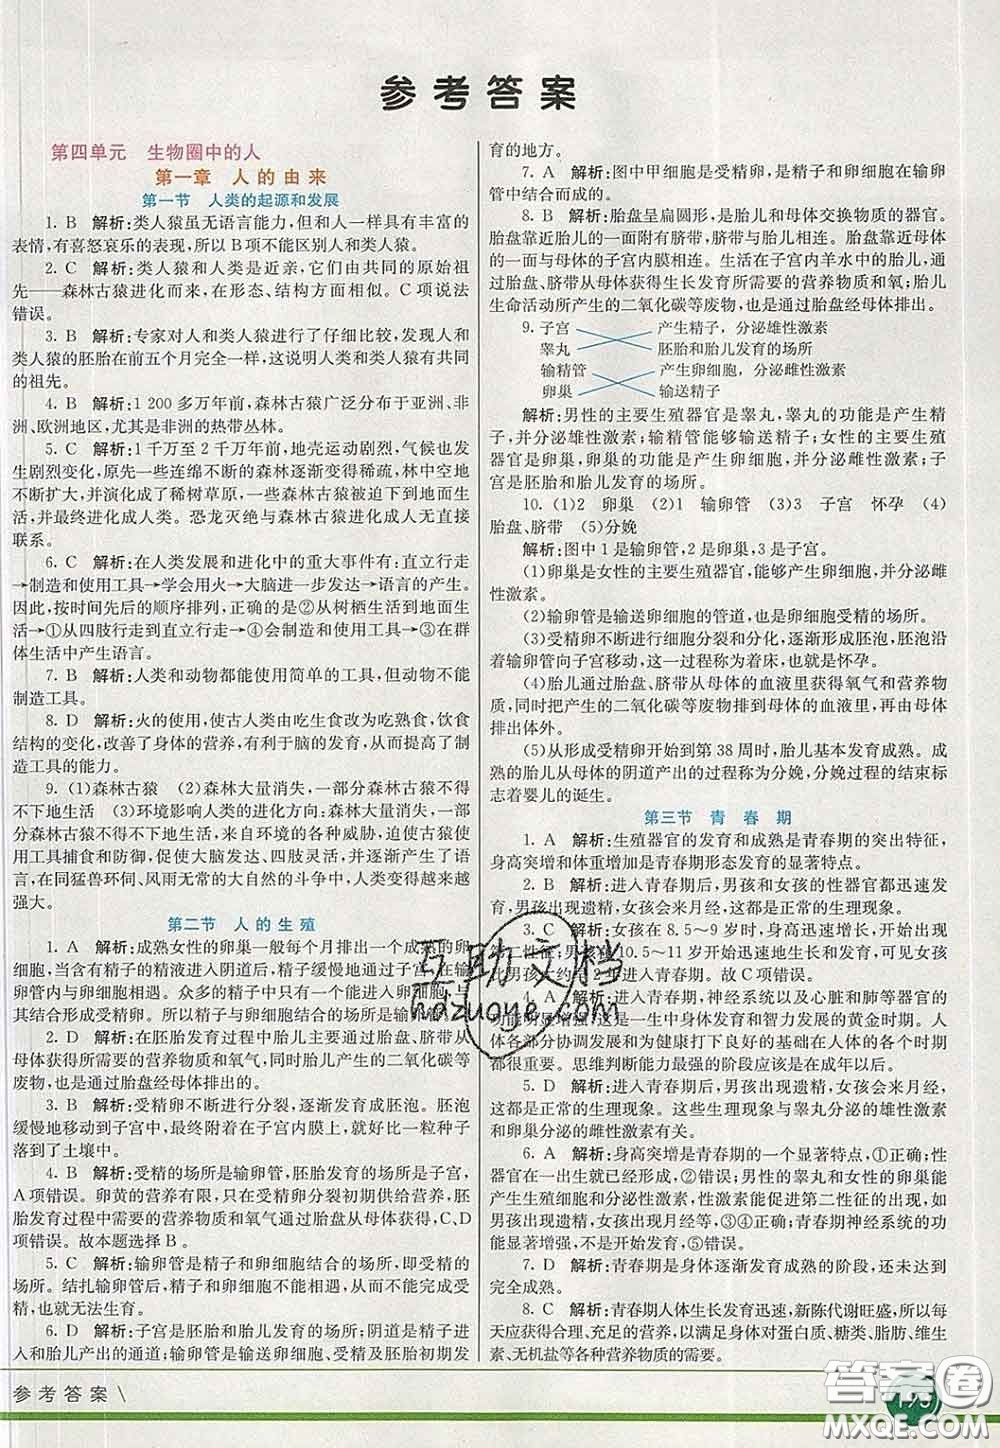 参考答案
第四单元 生物圈中的人
第一章 人的由来
第一节 人类的起源和发展
1. B 解析:类人猿虽无语言能力,但和人一样具有丰富的
表情,有喜怒哀乐的表现,所以 B 项不能区别人和类人猿。
2. C 解析:类人猿和人类是近亲,它们由共同的原始祖
先——森林古猿进化而来,在形态、结构方面相似。C 项说法
错误。
3. B 解析:专家对人和类人猿进行了仔细比较,发现人和
类人猿的胚胎在前五个月完全一样,这说明人类和类人猿有共同
的祖先。
4. B 解析:1 200 多万年前,森林古猿广泛分布于亚洲、非
洲、欧洲地区,尤其是非洲的热带丛林。
5. C 解析:1 千万至 2 千万年前,地壳运动剧烈,气候也发
生剧烈变化,原先一些连绵不断的森林逐渐变得稀疏,林中空地
不断扩大,并演化成了稀树草原,一些森林古猿到地面上生活,
并最终进化成人类。恐龙灭绝与森林古猿进化成人类无直接
联系。
6. C 解析:在人类发展和进化中的重大事件有:直立行走
→制造和使用工具→学会用火→大脑进一步发达→语言的产生。
因此,按时间先后的顺序排列,正确的是②从树栖生活到地面生
活→①从四肢行走到直立行走→④会制造和使用工具→③在群
体生活中产生语言。
7. B 解析:人类和动物都能使用简单的工具,但动物不能
制造工具。
8. D 解析:火的使用,使古人类由吃生食改为吃熟食,饮食
结构的变化,改善了身体的营养,有利于脑的发育,从而提高了制
造工具的能力。
9. (1)森林古猿 (2)森林大量消失,一部分森林古猿不得
不下地生活 (3)环境影响人类的进化方向;森林大量消失,一部
分森林古猿不得不下地生活,来自环境的各种影响,迫使古猿手
脚并用捕食和防御,促使大脑发达、四肢灵活,从而进化成人类。
在同猛兽环伺、风雨无常的大自然的斗争中,人类变得越来越
强大。
第二节 人的生殖
1. A 解析:成熟女性的卵巢一般每个月排出一个成熟的卵
细胞,当含有精子的精液进入阴道后,精子缓慢地通过子宫,在输
卵管内与卵细胞相遇。众多的精子中只有一个能进入卵细胞,与
其结合形成受精卵。所以精子与卵细胞结合的场所是输卵管。
2. D 解析:在胚胎发育过程中胎儿主要通过胎盘、脐带从
母体获得所需要的营养物质和氧气,同时胎儿产生的二氧化碳等
废物,也是通过胎盘经母体排出的。
3. B 解析:受精卵不断进行分裂,逐渐发育成胚泡。胚泡
缓慢地移动到子宫中,最终附着在子宫内膜上,就好比一粒种子
落到了土壤中。
4. B 解析:受精的场所是输卵管,胚胎发育的场所是子宫,
A 项错误。卵黄的营养有限,只仅在受精卵分裂初期供给营养,胚
胎发育过程中需要的营养物质和氧气通过胎盘从母体获得,C、D
项错误。故本题选择 B。
5. C 解析:输卵管是精子和卵细胞结合的场所,即受精的
场所。结扎输卵管后,精子和卵细胞不能相遇,从而不能完成受
精,也就无法生育。
6. D 解析:子宫是胚胎和胎儿发育的场所;阴道是精子进入
和胎儿产出的通道;输卵管是输送卵细胞、受精及胚胎初期发
育的地方。
7. A 解析:图中甲细胞是受精卵,是精子和卵细胞在输卵
管中结合而成的。
8. B 解析:胎盘呈扁圆形,是胎儿和母体交换物质的器官。
胎盘靠近胎儿的一面附有脐带,脐带与胎儿相连。胎盘靠近母体
的一面与母体的子宫内膜相连。生活在子宫内羊水中的胎儿,通
过胎盘、脐带从母体获得生长发育所需要的营养物质和氧;胎儿
生命活动所产生的二氧化碳等废物,也是通过胎盘经母体排出。
9. 子宫 产生精子,分泌雄性激素
睾丸 胚胎和胎儿发育的场所
输精管 产生卵细胞,分泌雌性激素
卵巢 输送精子
解析:男性的主要生殖器官是睾丸,睾丸的功能是产生精
子,并分泌雄性激素;输精管能够输送精子;女性的主要生殖
器官是卵巢,卵巢的功能是产生卵细胞,并分泌雌性激素;子
宫是胚胎和胎儿发育的场所。
10. (1)2 卵巢 (2)1 输卵管 (3)3 子宫 怀孕 (4)
胎盘、脐带 (5)分娩
解析:图中 1 是输卵管,2 是卵巢,3 是子宫。
(1)卵巢是女性的主要生殖器官,能够产生卵细胞,并分泌雌
性激素。
(2)输卵管是输送卵细胞的管道,也是卵细胞受精的场所。
(3)受精卵不断进行细胞分裂和分化,逐渐形成胚泡。胚泡沿
着输卵管向子宫移动,这一过程称为着床,也就是怀孕。
(4)胎儿通过胎盘、脐带从母体的血液里获得氧气和营养物
质,同时把产生的二氧化碳等废物排到母体的血液里,再由母体
排出体外。
(5)从形成受精卵开始到第 38 周时,胎儿基本发育成熟。成
熟的胎儿从母体的阴道产出的过程称为分娩,分娩过程的结束标
志着婴儿的诞生。
第三节 青春期
1. A 解析:生殖器官的发育和成熟是青春期的突出特征,
身高突增和体重增加是青春期形态发育的显著特点。
2. B 解析:进入青春期后,男孩和女孩的性器官都迅速发
育,男孩出现遗精,女孩会来月经,这是正常的生理现象。
3. C 解析:女孩在 8.5~9 岁时,身高、体重等会出现
第二性征;男孩 10.5~11 岁开始迅速地生长和发育,可见女孩
比男孩大约早 2 年进入青春期。故 C 项错误。
4. A 解析:进入青春期后,神经系统以及心脏和肺等器官的
功能明显增强,这是一生中身体发育和智力发展的黄金时期。
人体各部分协调发展和为健康打下良好的基础在人体的各个时期
都很重要。思维判断能力最强的阶段应该是在成年以后。
5. D 解析:进入青春期后,男孩出现遗精,女孩会来月经,
这都是正常的生理现象。这些生理现象与睾丸分泌的雄性激素
和卵巢分泌的雌性激素有关。
6. A 解析:身高突增是青春期的一个显著特点,①正确;性
器官在一出生就已经形成,②错误;男性的睾丸和女性的卵巢能
产生生殖细胞和分泌性激素,性激素能促进第二性征的出现,如
男孩出现遗精,女孩出现月经,③④正确;青春期神经系统的功能
显著增强,不是开始发育,⑤错误。
7. D 解析:青春期是身体逐渐发育成熟的阶段,还未达到
完全成熟。
8. C 解析:青春期人体生长发育迅速,新陈代谢旺盛,所以每
天应获得合理、充足的营养,以满足身体对蛋白质、糖类、脂肪、维生
素、无机盐等各种营养物质的需要。
互助文档
hdzuoye.com
参考答案 \
答案圈
MXQE.COM